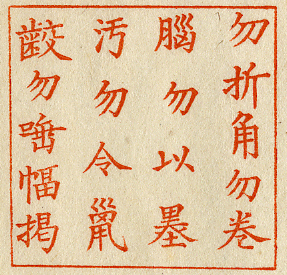 勿折角勿卷
腦勿以墨
汚勿令鼠
齩勿唾幅揭